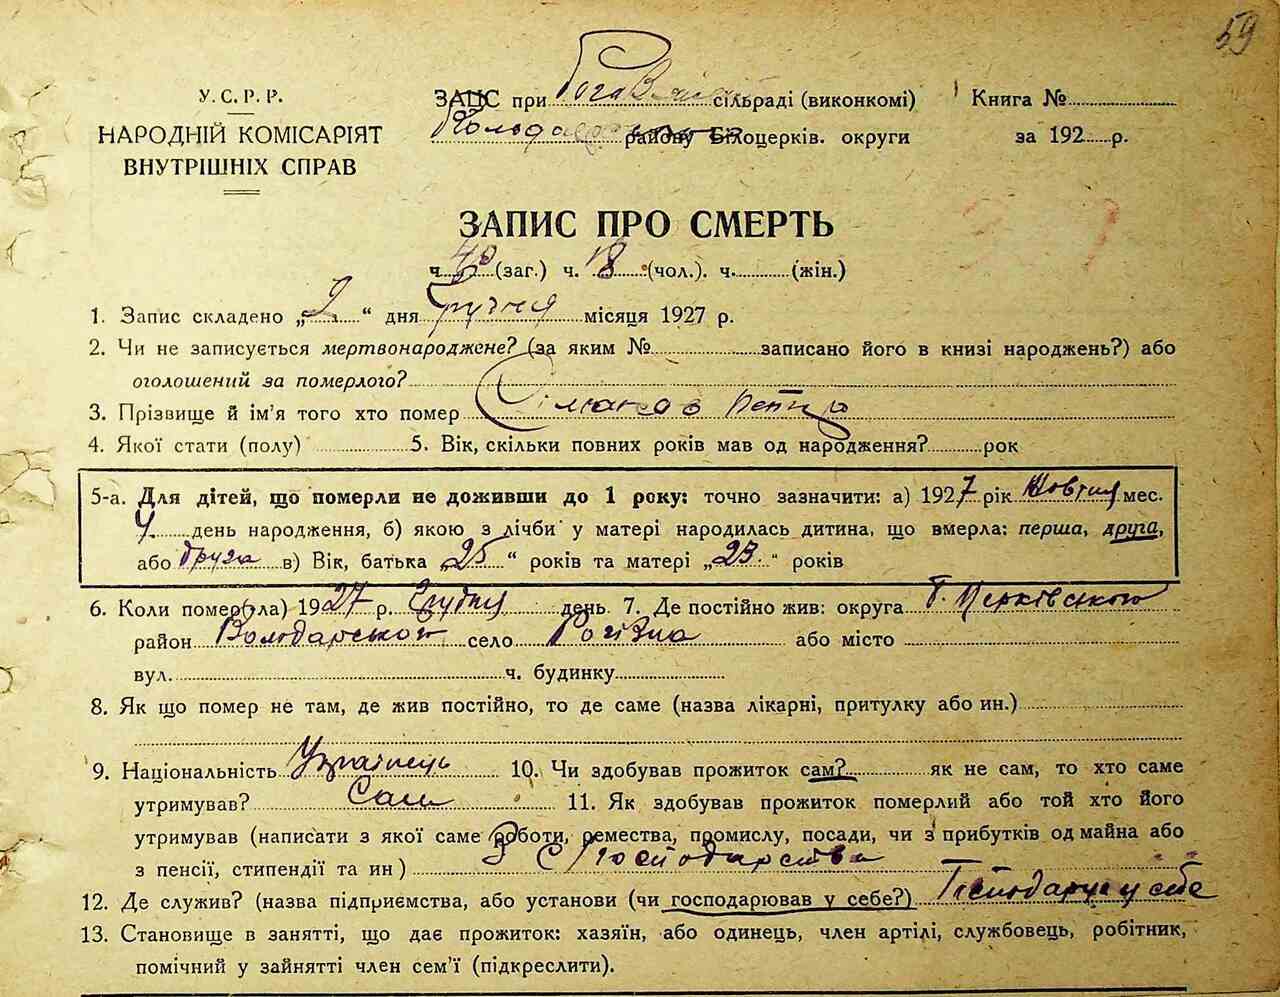 59
У. С. Р. Р.
НАРОДНІЙ КОМІСАРІЯТ
ВНУТРІШНІХ СПРАВ
ЗАПС при сільраді (виконкомі)
району Білоцерків. округи
Книга №
за 192 р.
ЗАПИС ПРО СМЕРТЬ
ч. 40 (заг.) ч. 18 (чол.). ч. (жін.)
1. Запис складено „2“ дня Грудня місяця 1927 р.
2. Чи не записується мертвонароджене? (за яким № записано його в книзі народжень?) або
оголошений за померлого?
3. Прізвище й ім'я того хто помер Петро
4. Якої стати (полу) 5. Вік, скільки повних років мав од народження? рок
5-а. Для дітей, що померли не доживши до 1 року: точно зазначити: а) 1927 рік Жовтня мес.
4 день народження, б) якою з лічби у матері народилась дитина, що вмерла: перша, друга,
або друга в) Вік, батька „25“ років та матері „23“ років
6. Коли помер(ла) 1927 р. Грудня день 7. Де постійно жив: округа Б. Церківського
район Володарського село Рогізна або місто
вул. ч. будинку
8. Як що помер не там, де жив постійно, то де саме (назва лікарні, притулку або ин.)
9. Національність Українець 10. Чи здобував прожиток сам? як не сам, то хто саме
утримував? Сам 11. Як здобував прожиток померлий або той хто його
утримував (написати з якої саме роботи, ремества, промислу, посади, чи з прибутків од майна або
з пенсії, стипендії та ин) З с/господарства
12. Де служив? (назва підприємства, або установи (чи господарював у себе?) Господарює у себе
13. Становище в занятті, що дає прожиток: хазяїн, або одинець, член артілі, службовець, робітник,
помічний у зайнятті член сем'ї (підкреслити).